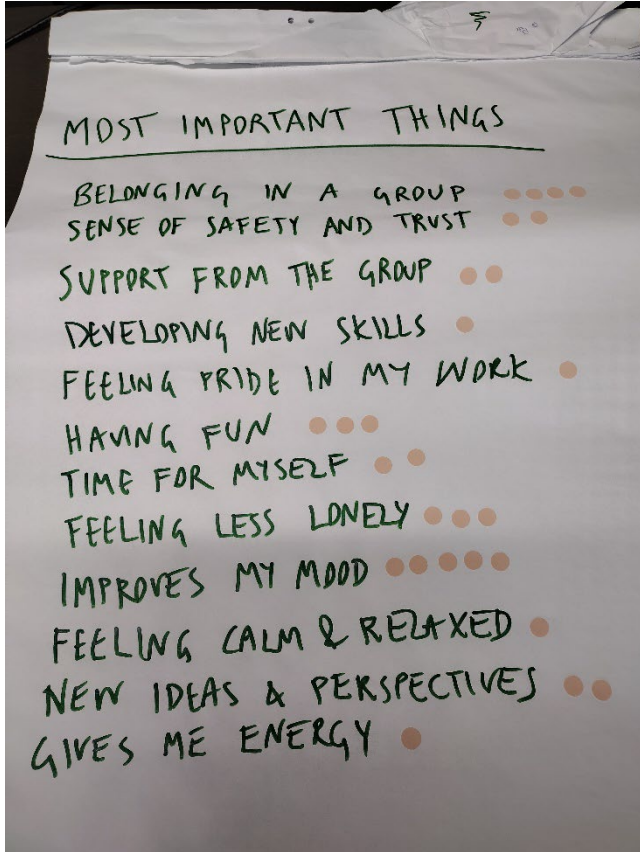 MOST IMPORTANT THINGS
BELONGING IN A GROUP
SENSE OF SAFETY AND TRUST
SUPPORT FROM THE GROUP
DEVELOPING NEW SKILLS
FEELING PRIDE IN MY WORK
HAVING FUN
TIME FOR MYSELF
FEELING LESS LONELY
IMPROVES MY MOOD
FEELING CALM & RELAXED
NEW IDEAS & PERSPECTIVES
GIVES ME ENERGY